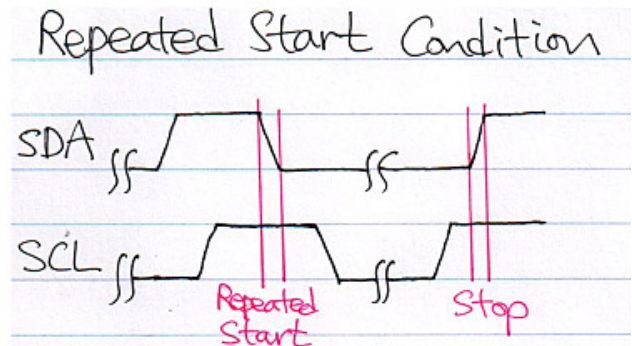 Repeated Start Condition
SDA
SCL
Repeated
Start
Stop